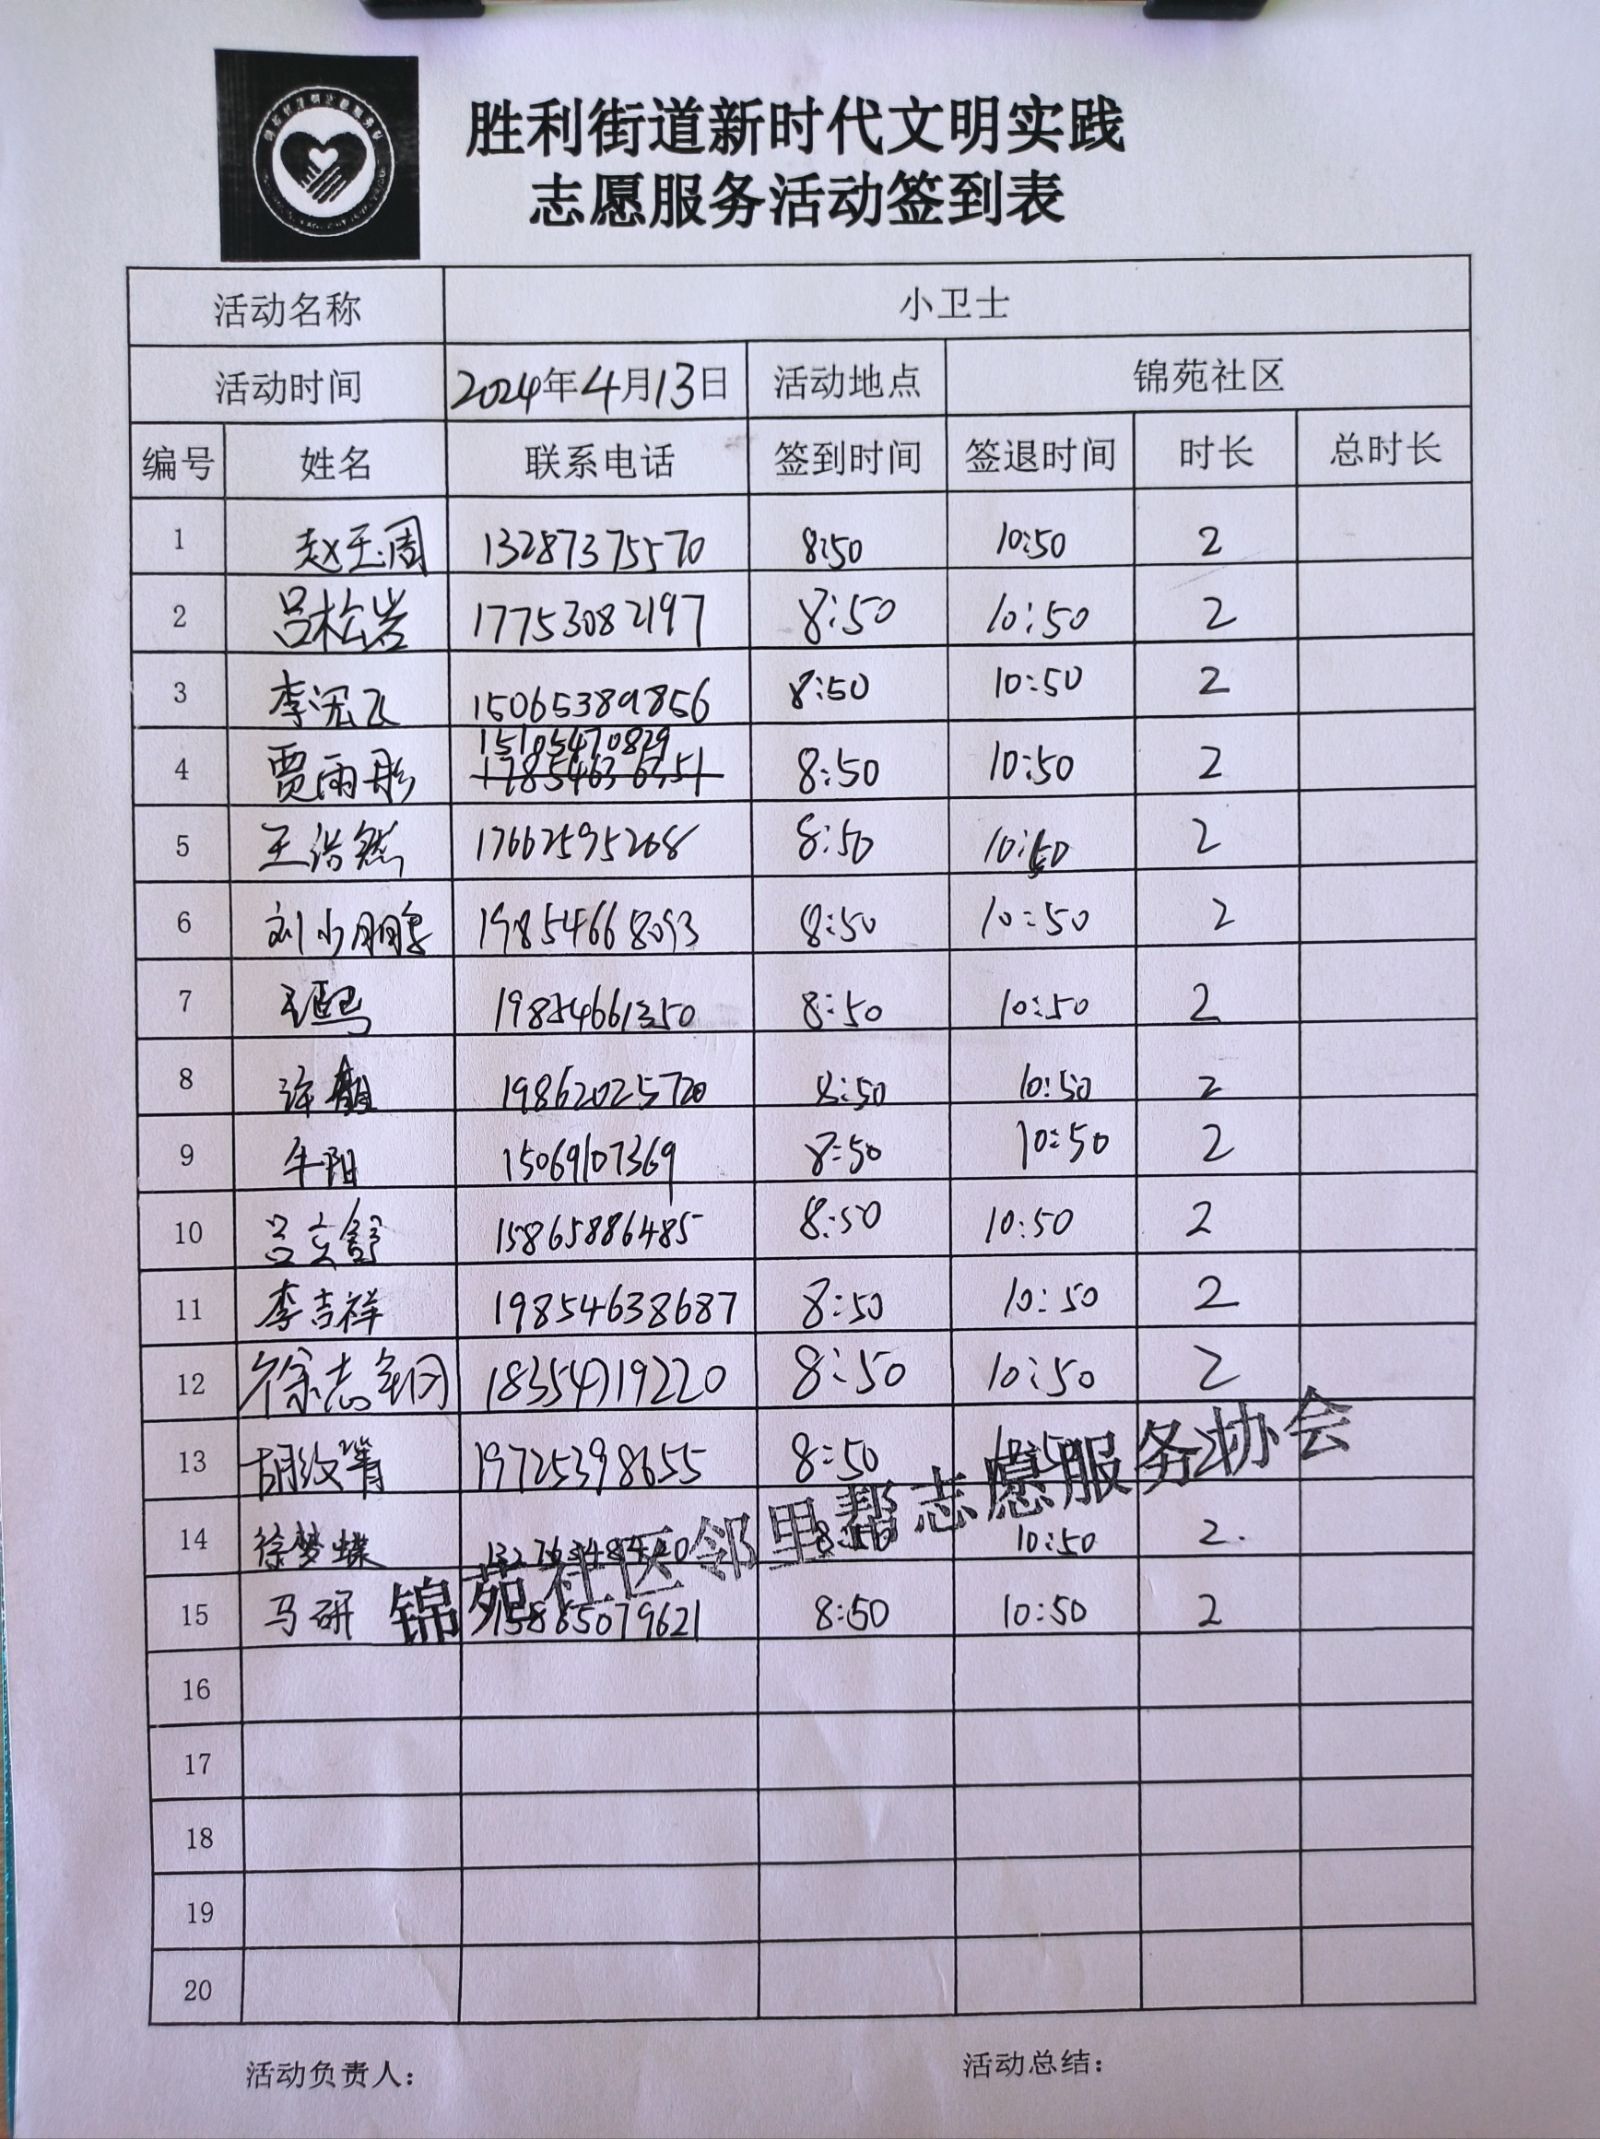 胜利街道新时代文明实践
志愿服务活动签到表
活动名称 小卫士
活动时间 2024年4月13日 活动地点 锦苑社区
编号 姓名 联系电话 签到时间 签退时间 时长 总时长
1 赵玉周 13287375570 8:50 10:50 2
2 吕松岩 17753082197 8:50 10:50 2
3 李浤飞 15065389856 8:50 10:50 2
15105470829
4 贾雨彤 17854636351 8:50 10:50 2
5 王浩然 17662595268 8:50 10:50 2
6 刘少鹏 19854668093 8:50 10:50 2
7 王熙 19854661350 8:50 10:50 2
8 许 19862025720 8:50 10:50 2
9 牛阳 15069107369 8:50 10:50 2
10 吕立舒 15865886485 8:50 10:50 2
11 李吉祥 19854638687 8:50 10:50 2
12 徐志钢 18354719220 8:50 10:50 2
13 胡纹箐 19725398655 8:50 10:50 2
14 徐梦蝶 8:50 10:50 2.
15 马研 15865079621 8:50 10:50 2
锦苑社区邻里帮志愿服务协会
16
17
18
19
20
活动负责人: 活动总结: